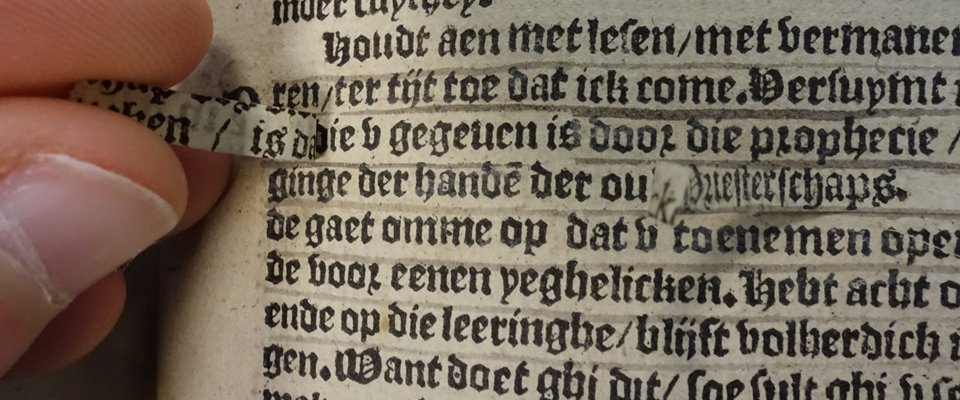 Houdt aen met lesen/met vermanen
ren/ter tijt toe dat ick come.Versuymt
is die v gegeuen is dooꝛ die pꝛophecie /
ginge der handē der ou priesterschaps.
de gaet omme op dat v toenemen open
de vooꝛ eenen yeghelicken.Hebt acht o
ende op die leeringhe/blijft volherdich
gen.Want doet ghi dit/ soe sult ghi v se